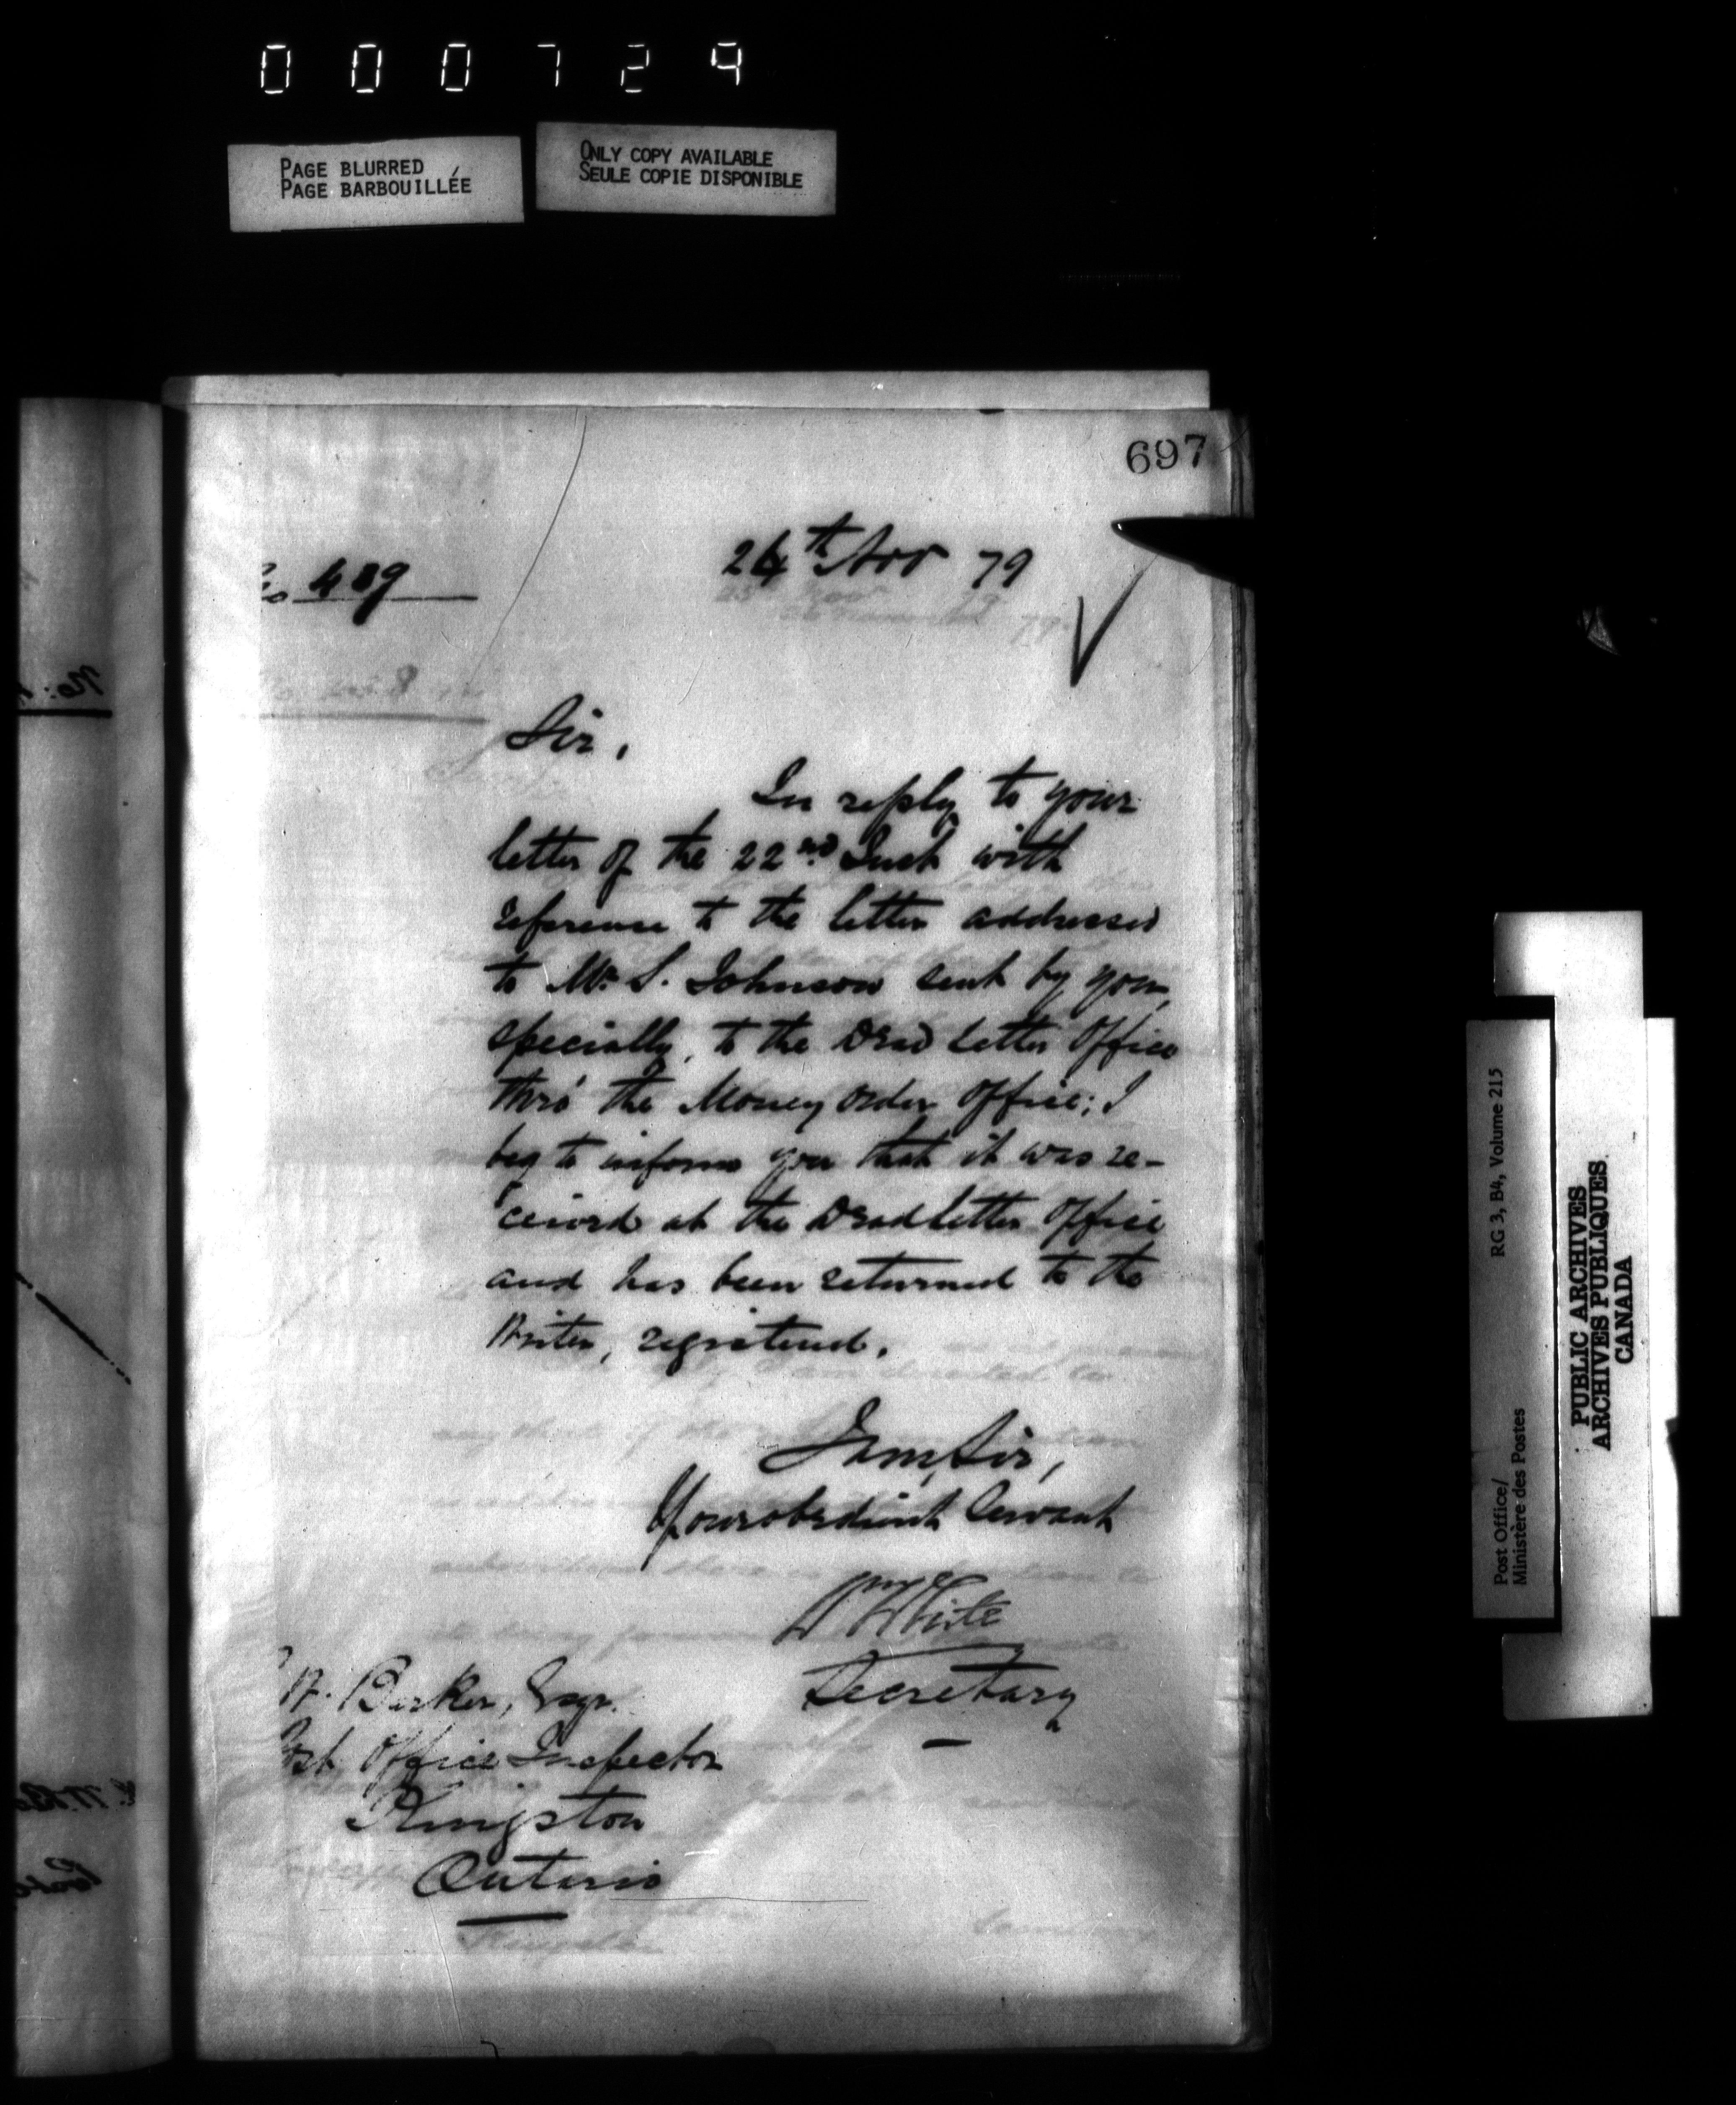 000729
PAGE BLURRED
PAGE BARBOUILLÉE
ONLY COPY AVAILABLE
SEULE COPIE DISPONIBLE
697
24th Nov 79
No 489
Sir,
In reply to your
letter of the 22nd Inst with
reference to the letter addressed
to Mr. S. Johnson sent by you,
specially, to the Dead Letter Office
thro' the Money Order Office; I
beg to inform you that it was re-
ceived at the Dead Letter Office
and has been returned to the
Writer, registered.
I am, Sir,
Your obedient Servant
Wm White
Secretary
W. Barker, Esqr.
Post Office Inspector
Kingston
Ontario
Post Office/
Ministère des Postes
RG 3, B4, Volume 215
PUBLIC ARCHIVES
ARCHIVES PUBLIQUES
CANADA